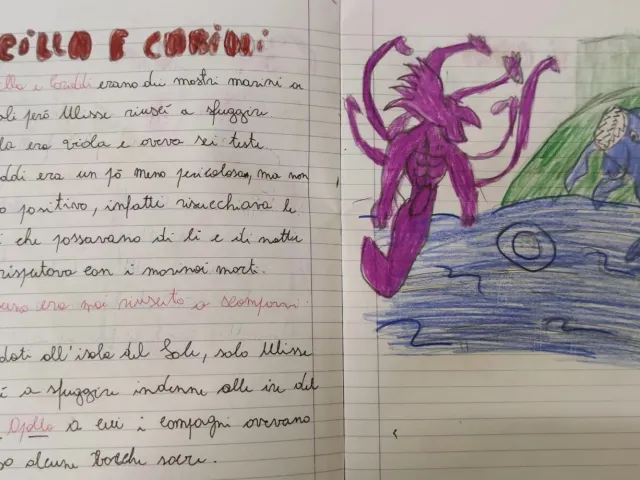 CILLA E CARIDDI
lla e Cariddi erano dei mostri marini a
ali però Ulisse riuscì a sfuggire.
la era viola e aveva sei teste.
ddi era un pò meno pericolosa, ma non
o positivo, infatti risucchiava le
i che passavano di lì e di notte
risputava con i marinai morti.
uno era mai riuscito a scomparsi.
dati all'isola del Sole, solo Ulisse
ì a sfuggire indenne alle ire del
Apollo a cui i compagni avevano
so alcune Bacche sacre.